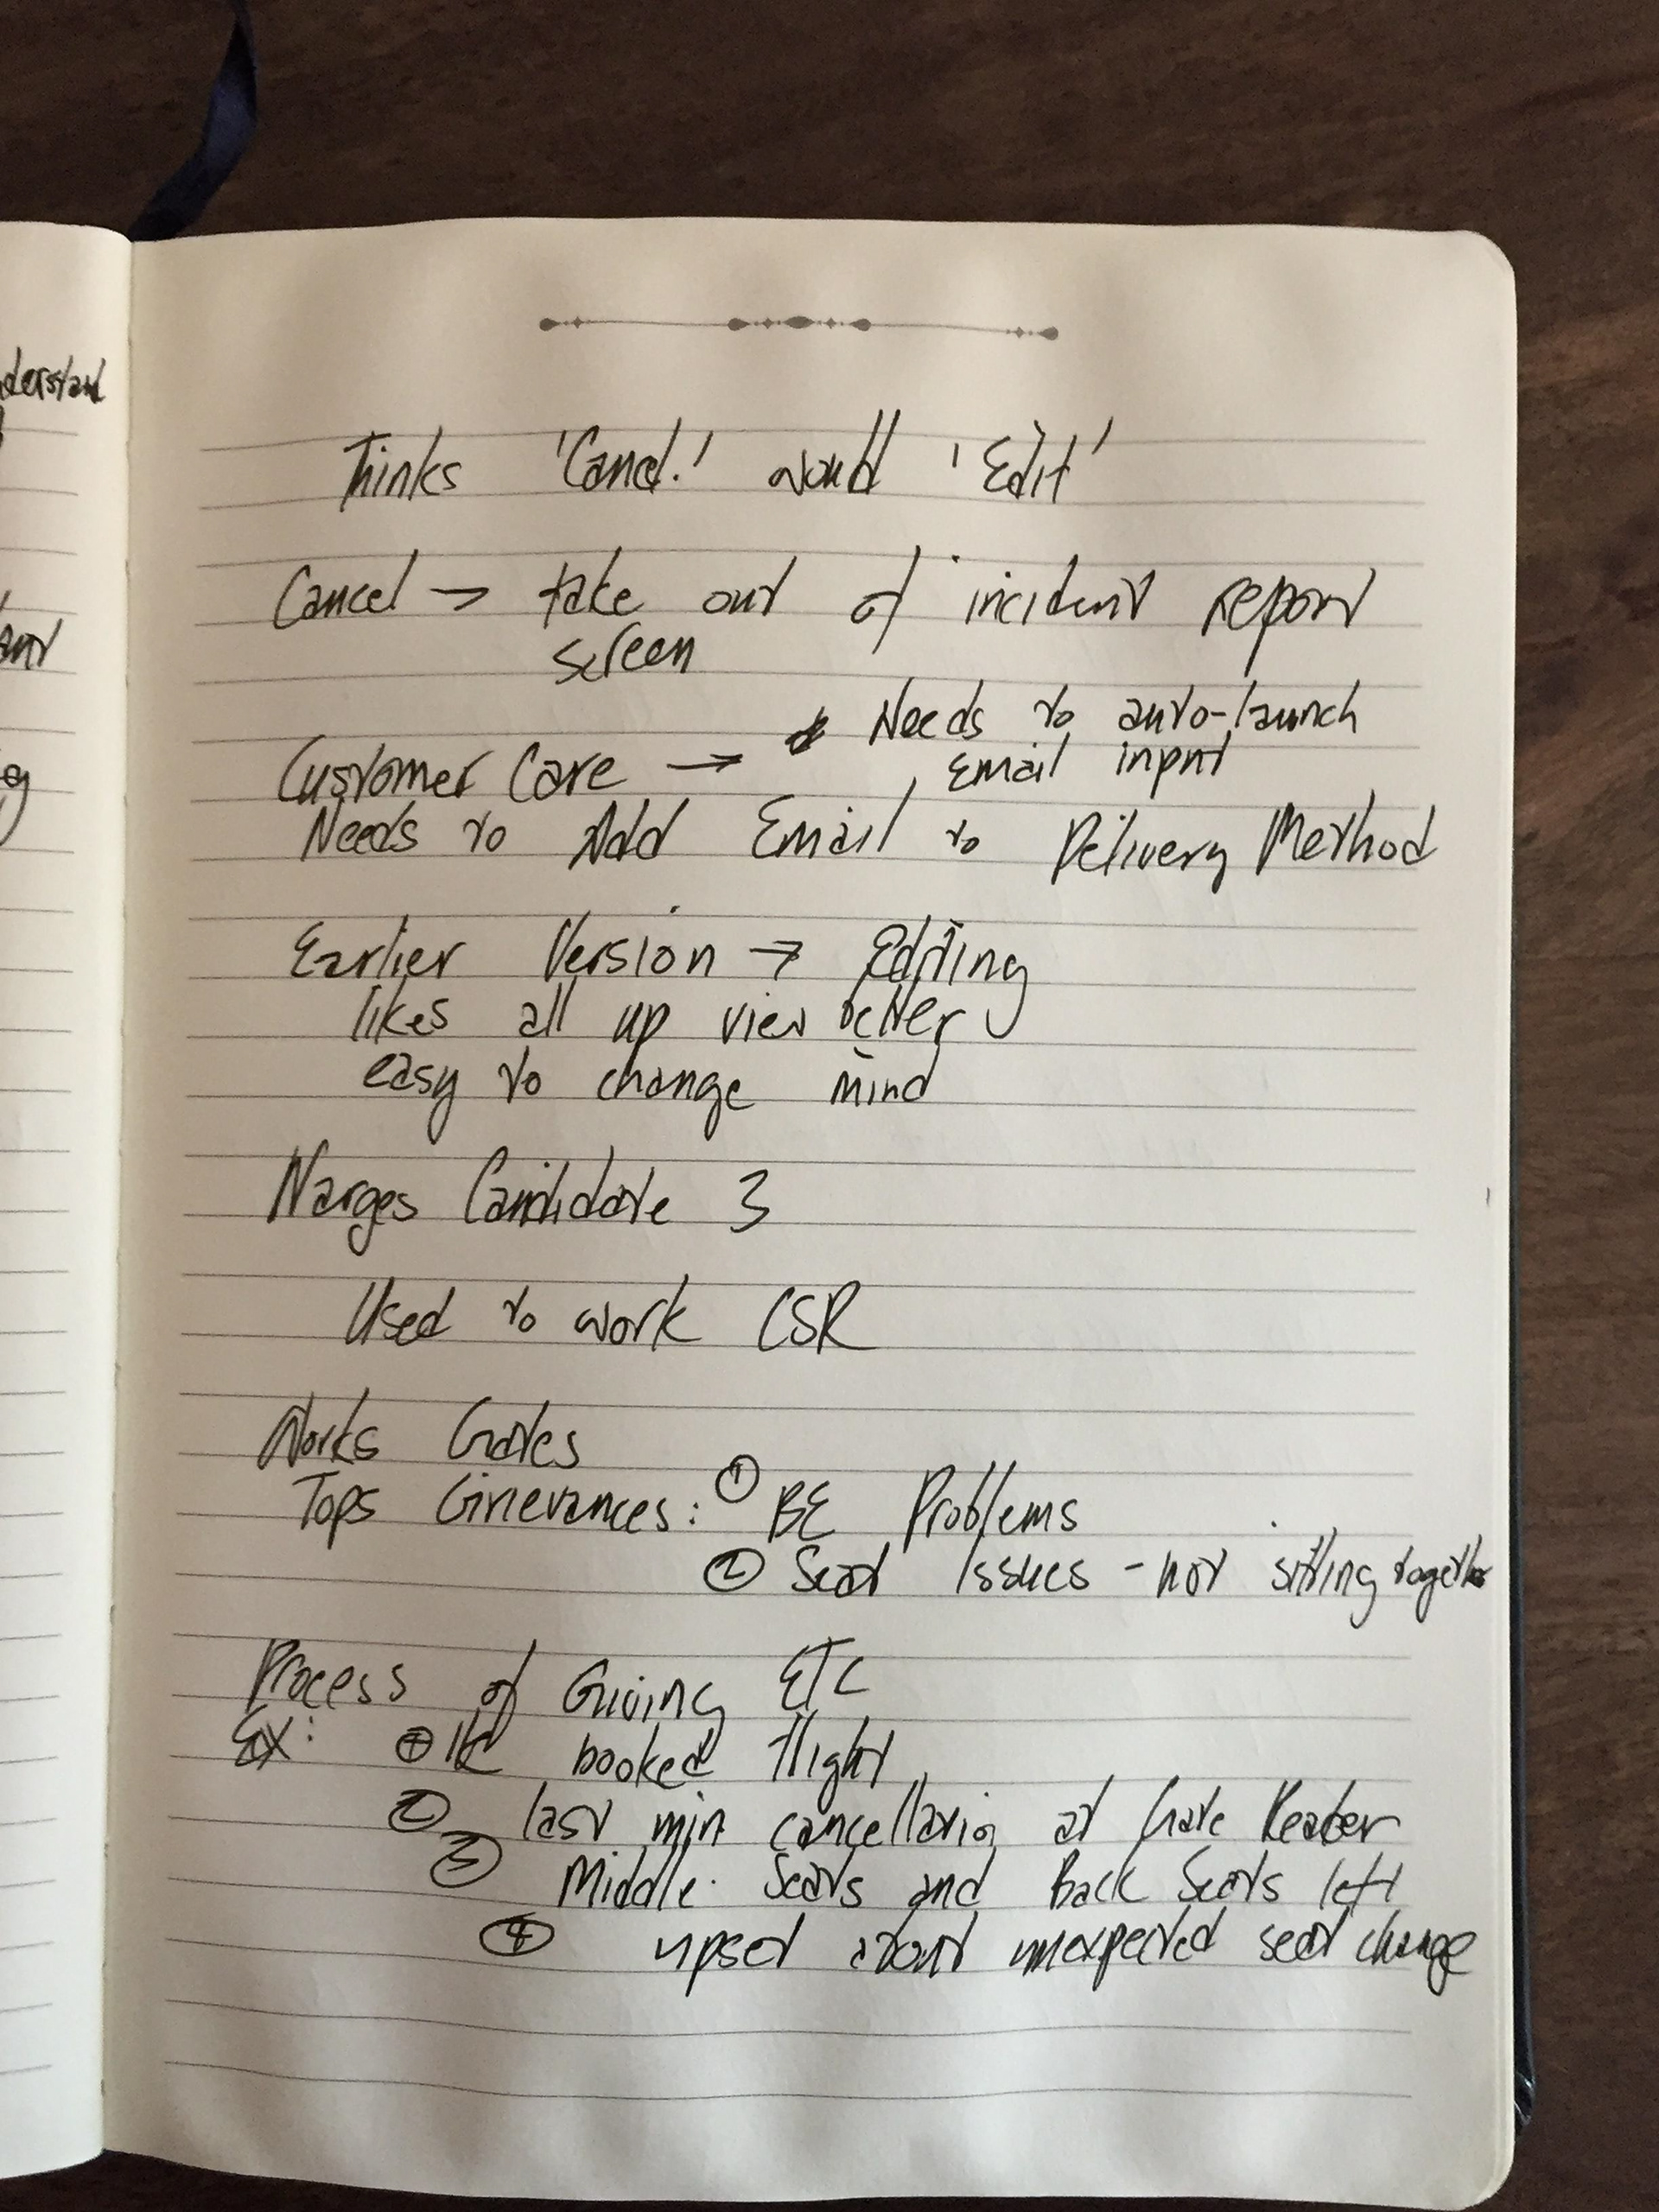 derstand
Thinks 'Cancel.' would 'Edit'
Cancel → take out of incident report
screen
* Needs to auto-launch
Customer Care → Email input
Needs to Add Email to Delivery Method
Earlier Version → Editing
likes all up view better
easy to change mind
Narges Candidate 3
Used to work CSR
Works Gates
Tops Grievances: ① BE Problems
② Seat Issues - not sitting together
Process of Giving ETC
Ex: ① booked flight
② last min cancellation at Gate Reader
③ Middle Seats and Back Seats left
④ upset about unexpected seat change